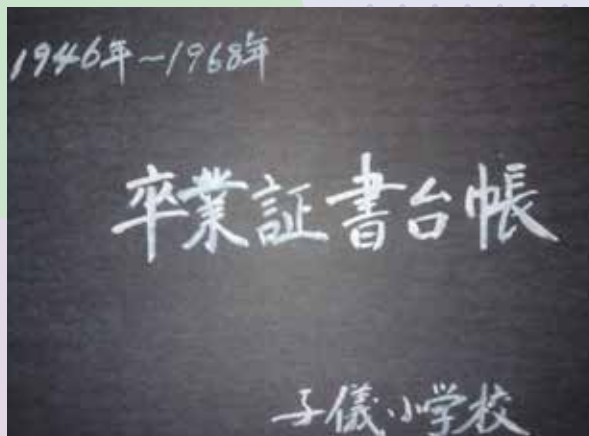 1946年~1968年
卒業証書台帳
子儀小学校